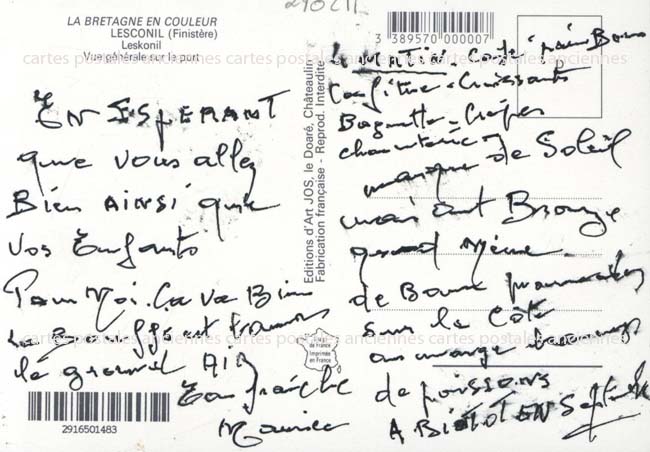 LA BRETAGNE EN COULEUR
LESCONIL (Finistère)
Leskonil
Vue générale sur le port
EN ESPERANT
que vous allez
Bien AINSI que
vos Enfants
Pour Moi. Ca va Bien
le grand AIR
Eau fraîche
Maurice
2916501483
Editions d'Art JOS, le Doaré, Châteaulin
Fabrication française - Reprod. Interdite
3 389570 000007
MATIN Café pain Beurre
Confiture - Croissants
Baguette - Crêpes
charcuterie
manque de Soleil
mais ont Bronze
quand même
de Bonne promenades
sur la Côte
on mange beaucoup
de poissons
A BIENTOT EN Septembre
de France
Imprimée
en France
cartes postales anciennes cartes postales anciennes cartes postales anciennes
cartes postales anciennes cartes postales anciennes cartes postales anciennes